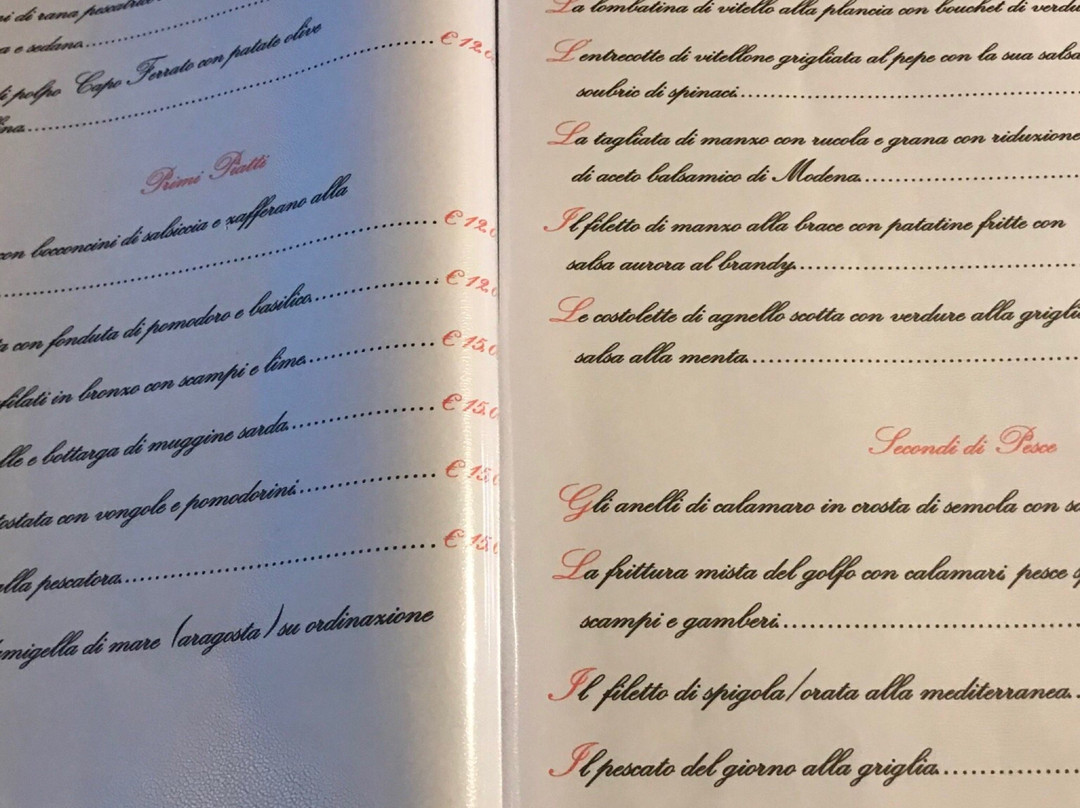 di rana pescatrice
a e sedano
di polpo Capo Ferrato con patate olive
€ 12.0
Primi Piatti
con bocconcini di salsiccia e zafferano alla
€ 12.0
con fonduta di pomodoro e basilico € 12.0
filati in bronzo con scampi e lime € 15.0
e bottarga di muggine sarda € 15.0
tostata con vongole e pomodorini € 15.0
alla pescatora € 15.0
di mare (aragosta) su ordinazione
La lombatina di vitello alla plancia con bouchet di verdu
L'entrecotte di vitellone grigliata al pepe con la sua salsa
soubric di spinaci
La tagliata di manzo con rucola e grana con riduzione
di aceto balsamico di Modena
Il filetto di manzo alla brace con patatine fritte con
salsa aurora al brandy
Le costolette di agnello scotta con verdure alla grigli
salsa alla menta
Secondi di Pesce
Gli anelli di calamaro in crosta di semola con
La frittura mista del golfo con calamari, pesce
scampi e gamberi
Il filetto di spigola/orata alla mediterranea
Il pescato del giorno alla griglia